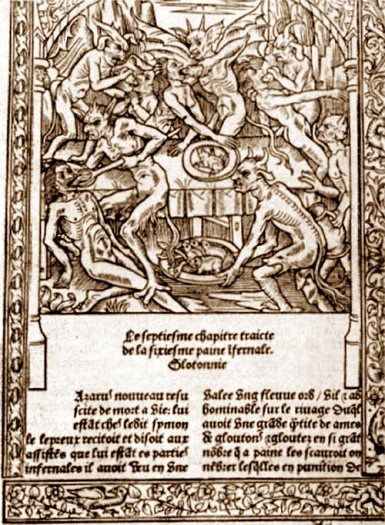 Le septiesme chapitre traicte
de la sixiesme paine Ifernale.
Glotonnie
Azarus nouueau resu
scite de mort a vie: lui
estāt ches ledit symon
le lepreux recitoit et disoit aux
assistēs que lui estāt es parties
infernales il auoit veu en vne
valee vng fleuue ord / vil z ab
hominable sur le riuage duq̄l
auoit vne grāde q̄tite de ames
de gloutons z gloutez en si grāt
nōbre q̄ a paine les scauroit on
nōbrer lesq̄lles en punition de